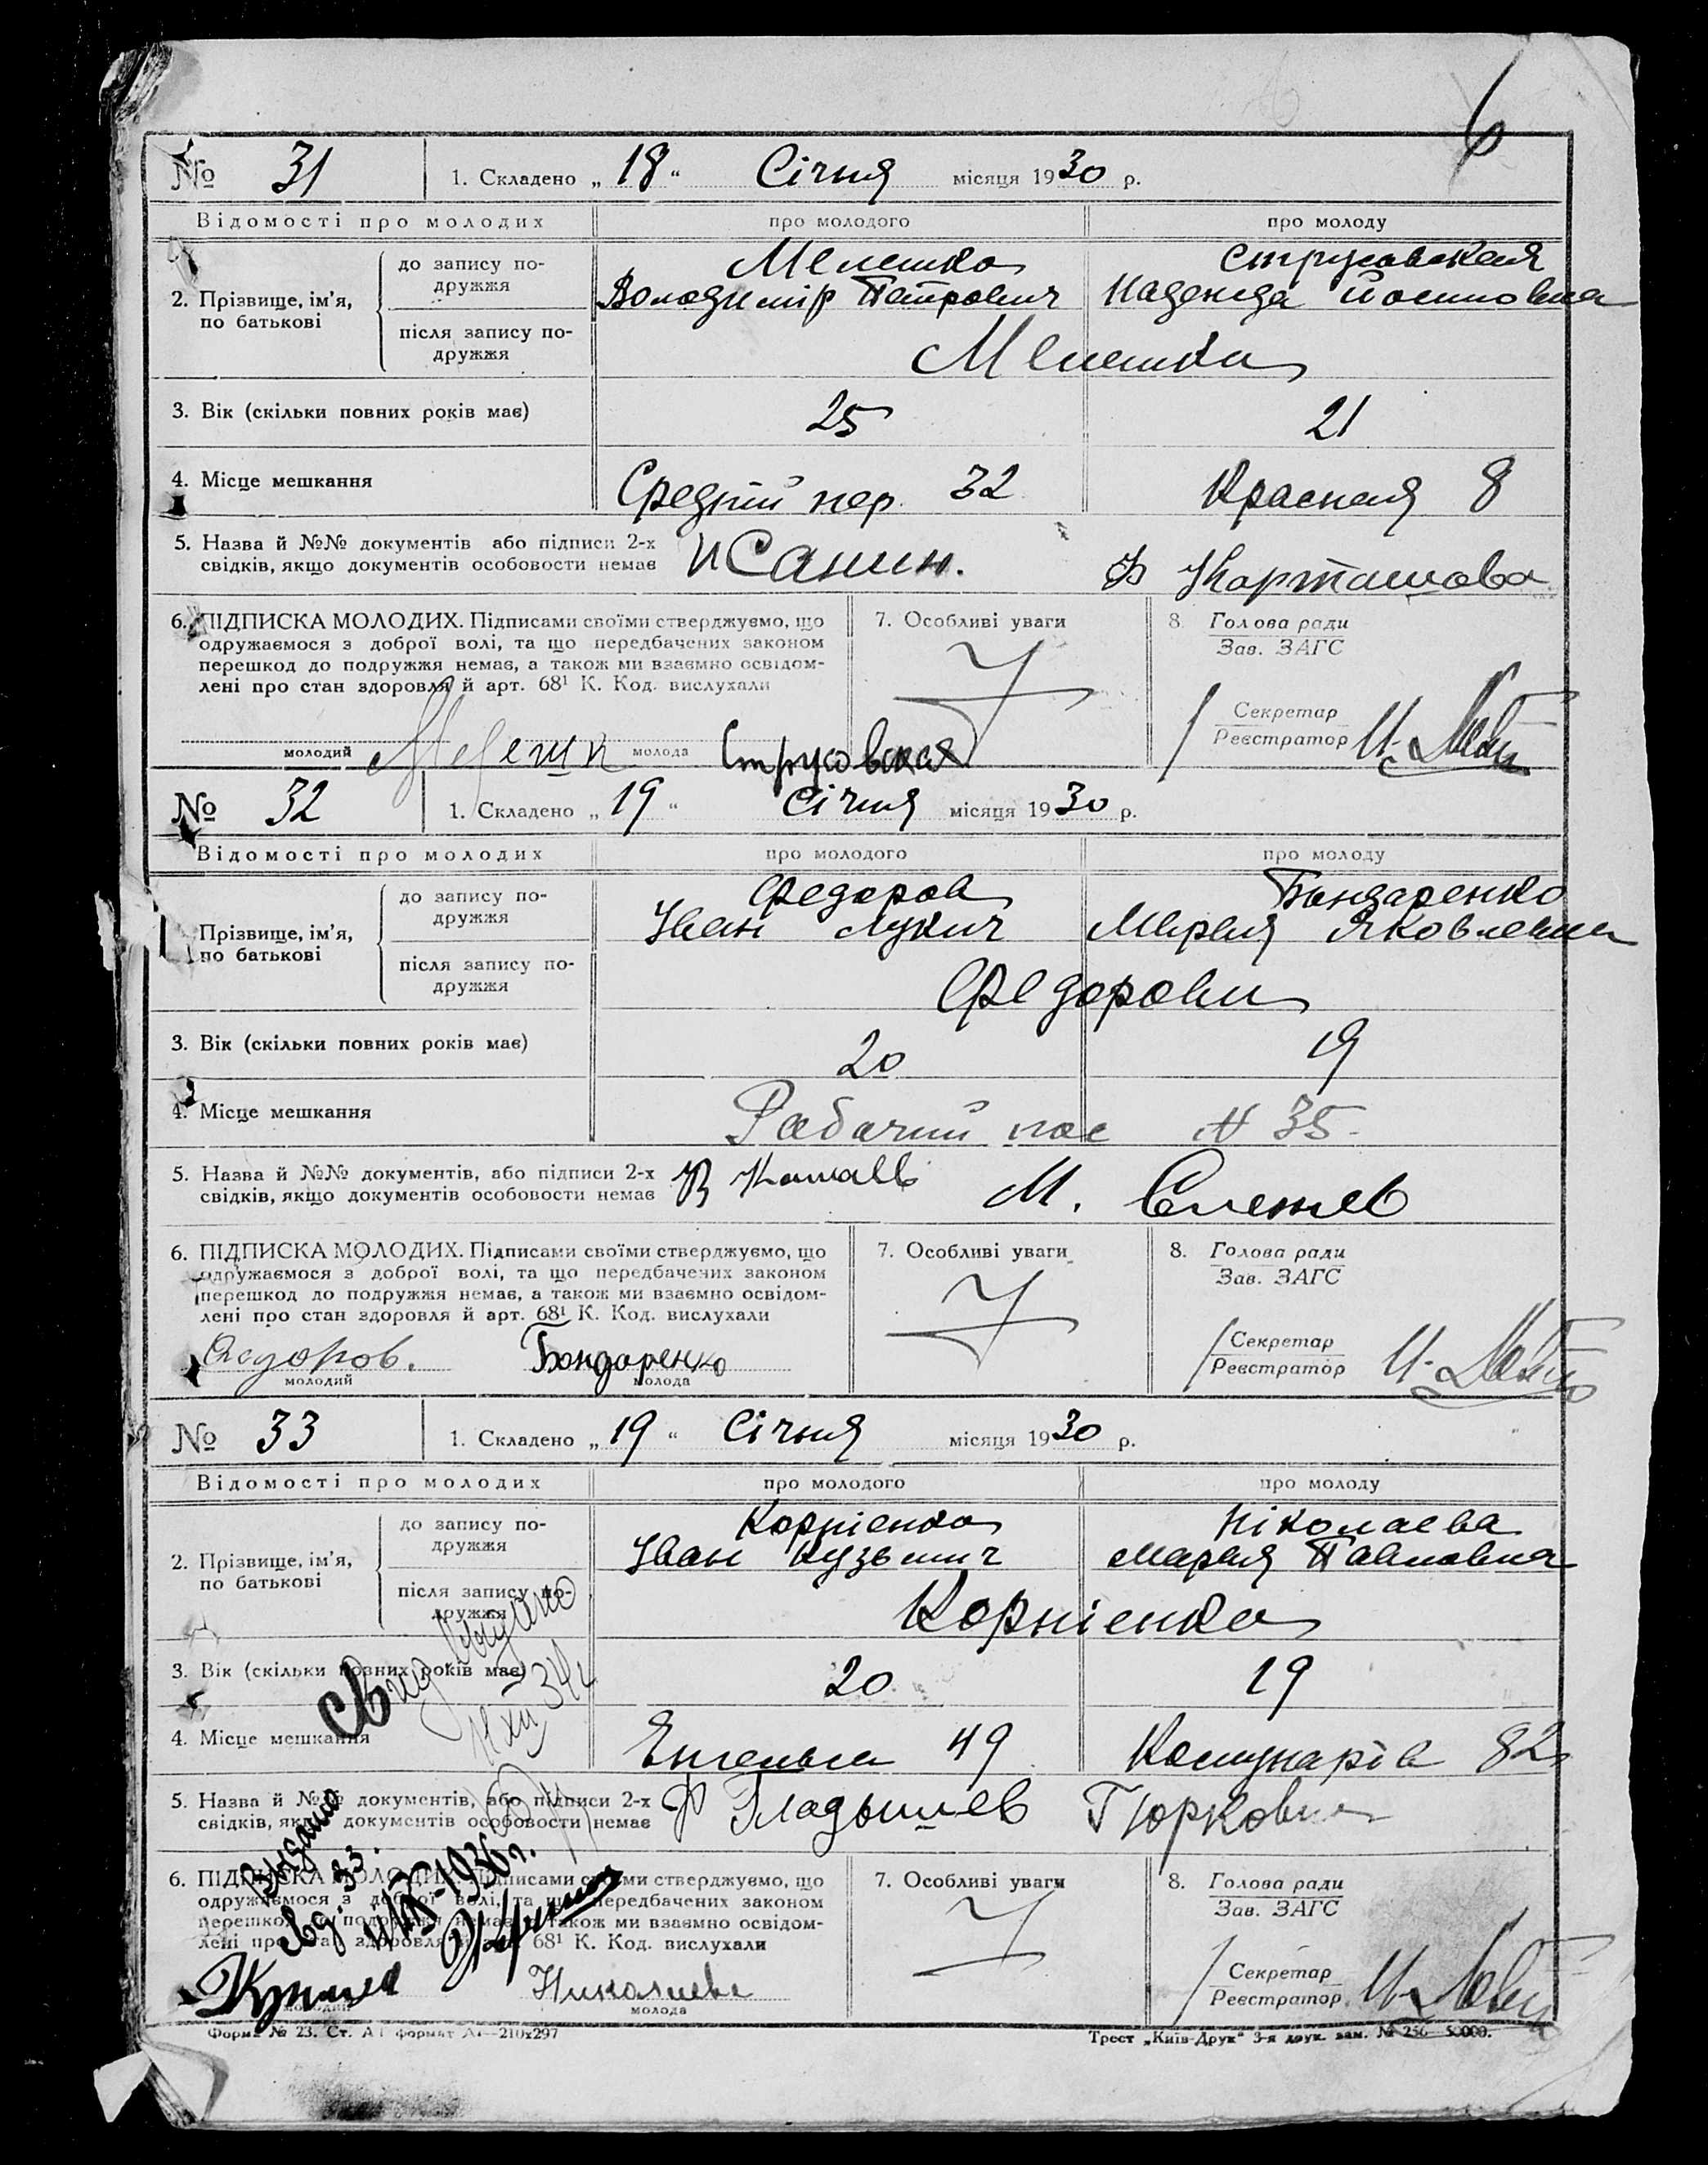 6
№ 31 1. Складено „ 18 “ Січня місяця 1930 р.
Відомості про молодих про молодого про молоду
2. Прізвище, ім’я, по батькові
до запису по-
дружжя
Мелешко Струковская
Володимір Петрович Надежда Йосиповна
після запису по-
дружжя
Мелешко
3. Вік (скільки повних років має) 25 21
4. Місце мешкання Средній пер. 32 Красная 8
5. Назва й №№ документів або підписи 2-х
свідків, якщо документів особовости немає
И Санин. Ф Карташова
6. ПІДПИСКА МОЛОДИХ. Підписами своїми стверджуємо, що
одружаємося з доброї волі, та що передбачених законом
перешкод до подружжя немає, а також ми взаємно освідом-
лені про стан здоровля й арт. 68¹ К. Код. вислухали
молодий Мелешк молода Струковская
7. Особливі уваги
8. Голова ради
Зав. ЗАГС
Секретар
Реєстратор
№ 32 1. Складено „ 19 “ Січня місяця 1930 р.
Відомості про молодих про молодого про молоду
Прізвище, ім’я,
по батькові
до запису по-
дружжя
Федоров Бондаренко
Іван Лукич Мария Яковлевна
після запису по-
дружжя
Федорови
3. Вік (скільки повних років має) 20 19
4. Місце мешкання Рабочий пос N 35
5. Назва й №№ документів, або підписи 2-х
свідків, якщо документів особовости немає
В М.
6. ПІДПИСКА МОЛОДИХ. Підписами своїми стверджуємо, що
одружаємося з доброї волі, та що передбачених законом
перешкод до подружжя немає, а також ми взаємно освідом-
лені про стан здоровля й арт. 68¹ К. Код. вислухали
Федоров. Бондаренко
молодий молода
7. Особливі уваги
8. Голова ради
Зав. ЗАГС
Секретар
Реєстратор
№ 33 1. Складено „ 19 “ Січня місяця 1930 р.
Відомості про молодих про молодого про молоду
2. Прізвище, ім’я,
по батькові
до запису по-
дружжя
Корнієнко Ніколаєва
Іван Кузьмич Мария Павловна
після запису по-
дружжя
Корнієнко
3. Вік (скільки повних років має) 20 19
4. Місце мешкання Енгельса 49 Комунарів 82
5. Назва й №№ документів, або підписи 2-х
свідків, якщо документів особовости немає
Ф Гладышев
Выдано
свид. 33.
1936 г.
6. ПІДПИСКА МОЛОДИХ. Підписами своїми стверджуємо, що
одружаємося з доброї волі, та що передбачених законом
перешкод до подружжя немає, а також ми взаємно освідом-
лені про стан здоровля й арт. 68¹ К. Код. вислухали
Николаева
молодий молода
7. Особливі уваги
8. Голова ради
Зав. ЗАГС
Секретар
Реєстратор
Форма № 23. Ст. А1 формат А4—210х297
Трест „Київ-Друк“ 3-я друк. зам. № 256—50000.